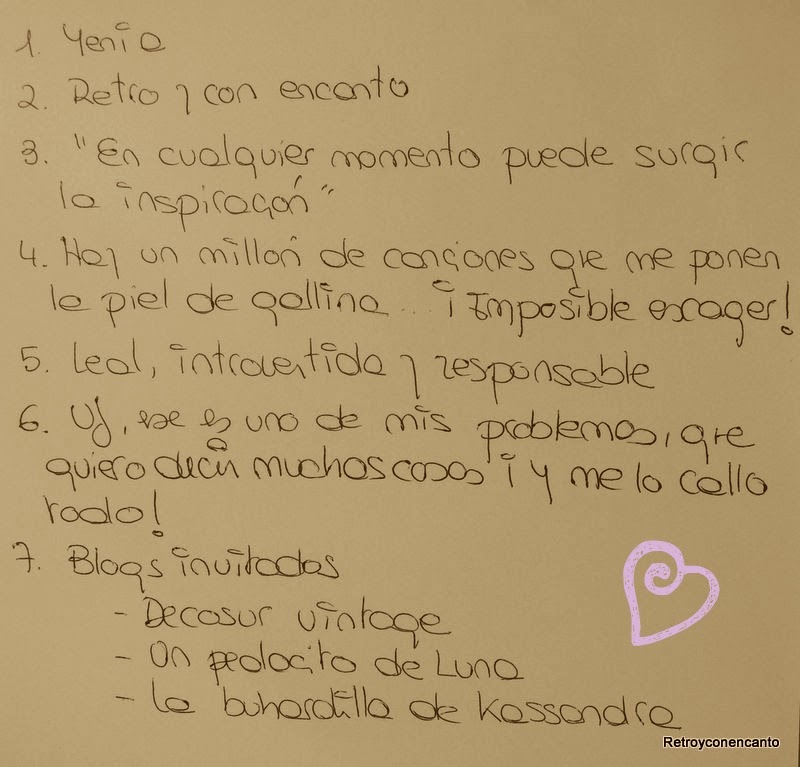 1. Yenia
2. Retro y con encanto
3. "En cualquier momento puede surgir
la inspiración"
4. Hay un millón de canciones que me ponen
la piel de gallina... ¡Imposible escoger!
5. Leal, introvertida y responsable
6. Uf, ese es uno de mis problemas, que
quiero decir muchas cosas ¡y me lo callo
todo!
7. Blogs invitados
- Decosur vintage
- Un pedacito de Luna
- La buhardilla de Kassandra
Retroyconencanto